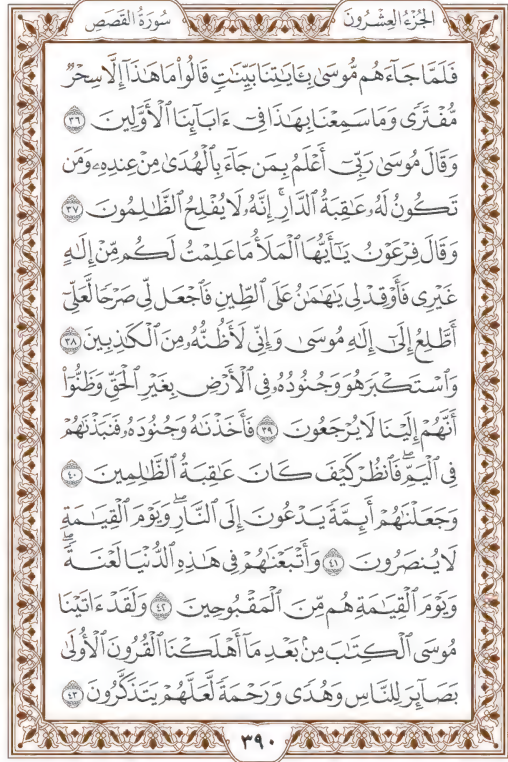 سُورَةُ القَصَصِ
الجُزْءُ العِشْرُونَ
فَلَمَّا جَآءَهُم مُّوسَىٰ بِـَٔايَٰتِنَا بَيِّنَٰتٍ قَالُوا۟ مَا هَٰذَآ إِلَّا سِحْرٌ
مُّفْتَرًى وَمَا سَمِعْنَا بِهَٰذَا فِىٓ ءَابَآئِنَا ٱلْأَوَّلِينَ ٣٦
وَقَالَ مُوسَىٰ رَبِّىٓ أَعْلَمُ بِمَن جَآءَ بِٱلْهُدَىٰ مِنْ عِندِهِۦ وَمَن
تَكُونُ لَهُۥ عَٰقِبَةُ ٱلدَّارِ ۖ إِنَّهُۥ لَا يُفْلِحُ ٱلظَّٰلِمُونَ ٣٧
وَقَالَ فِرْعَوْنُ يَٰٓأَيُّهَا ٱلْمَلَأُ مَا عَلِمْتُ لَكُم مِّنْ إِلَٰهٍ
غَيْرِى فَأَوْقِدْ لِى يَٰهَٰمَٰنُ عَلَى ٱلطِّينِ فَٱجْعَل لِّى صَرْحًا لَّعَلِّىٓ
أَطَّلِعُ إِلَىٰٓ إِلَٰهِ مُوسَىٰ وَإِنِّى لَأَظُنُّهُۥ مِنَ ٱلْكَٰذِبِينَ ٣٨
وَٱسْتَكْبَرَ هُوَ وَجُنُودُهُۥ فِى ٱلْأَرْضِ بِغَيْرِ ٱلْحَقِّ وَظَنُّوٓا۟
أَنَّهُمْ إِلَيْنَا لَا يُرْجَعُونَ ٣٩ فَأَخَذْنَٰهُ وَجُنُودَهُۥ فَنَبَذْنَٰهُمْ
فِى ٱلْيَمِّ ۖ فَٱنظُرْ كَيْفَ كَانَ عَٰقِبَةُ ٱلظَّٰلِمِينَ ٤٠
وَجَعَلْنَٰهُمْ أَئِمَّةً يَدْعُونَ إِلَى ٱلنَّارِ ۖ وَيَوْمَ ٱلْقِيَٰمَةِ
لَا يُنصَرُونَ ٤١ وَأَتْبَعْنَٰهُمْ فِى هَٰذِهِ ٱلدُّنْيَا لَعْنَةً ۖ
وَيَوْمَ ٱلْقِيَٰمَةِ هُم مِّنَ ٱلْمَقْبُوحِينَ ٤٢ وَلَقَدْ ءَاتَيْنَا
مُوسَى ٱلْكِتَٰبَ مِنۢ بَعْدِ مَآ أَهْلَكْنَا ٱلْقُرُونَ ٱلْأُولَىٰ
بَصَآئِرَ لِلنَّاسِ وَهُدًى وَرَحْمَةً لَّعَلَّهُمْ يَتَذَكَّرُونَ ٤٣
٣٩٠